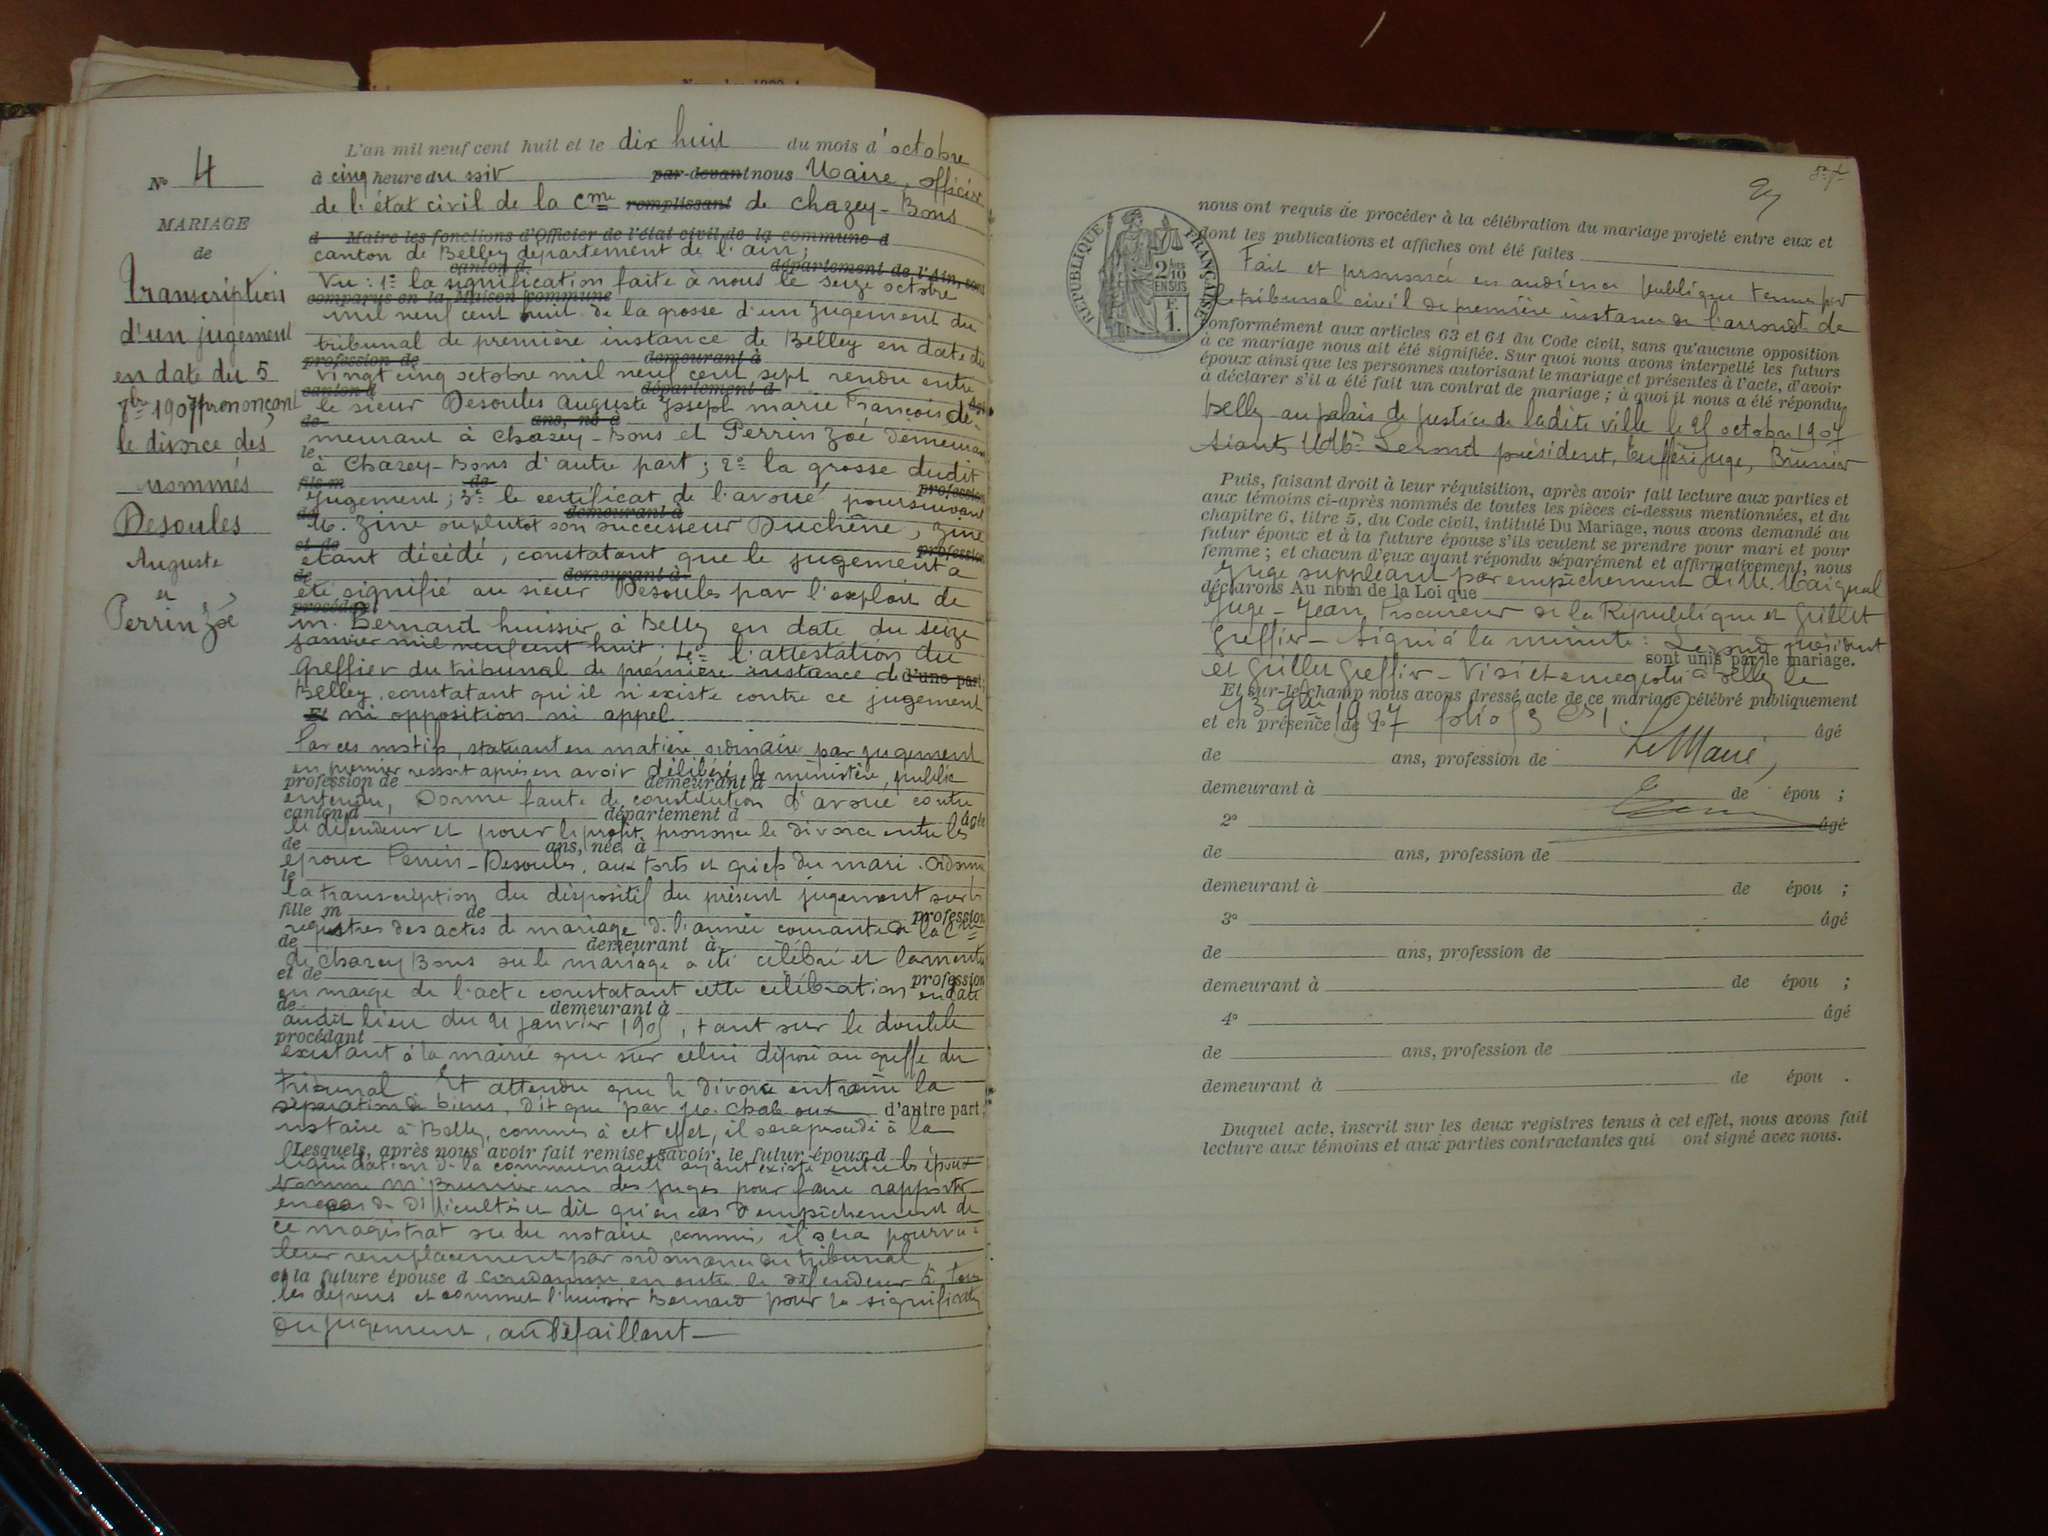 N° 4
MARIAGE
de
Transcription
d'un jugement
en date du 5
7bre 1907 prononçant
le divorce des
nommés
Desoules
Auguste
et
Perrin Zoé
L'an mil neuf cent huit et le dix huit du mois d'octobre
à cinq heure du soir par devant nous Maire, officier
de l'état civil de la cme remplissant de Chazey-Bons
d Maire les fonctions d'Officier de l'état civil de la commune d
canton de Belley département de l'ain;
canton d département de l'Ain, sont
Vu: 1° la signification faite à nous le seize octobre
comparus en la Maison commune
mil neuf cent huit de la grosse d'un jugement du
tribunal de première instance de Belley en date du
profession de demeurant à
vingt cinq octobre mil neuf cent sept rendu entre
canton d département d âgé
le sieur Desoules Auguste Joseph marie François de-
de ans, né à
meurant à Chazey-Bons et Perrin Zoé demeurant
le
à Chazey-Bons d'autre part; 2° la grosse dudit
fils m de profession
jugement; 3° le certificat de l'avoué poursuivant
de demeurant à
M. Zine ou plutôt son successeur Duchêne, Zine
et de profession
étant décédé, constatant que le jugement a
de demeurant à
été signifié au sieur Desoules par l'exploit de
procédant
m. Bernard huissier à Belley en date du seize
janvier mil neuf cent huit; 4° l'attestation du
Greffier du tribunal de première instance de d'une part;
Belley, constatant qu'il n'existe contre ce jugement
Et ni opposition ni appel
Par ces motifs, statuant en matière ordinaire par jugement
en premier ressort après en avoir délibéré, le ministère public
profession de demeurant à
entendu, Donne faute de constitution d'avoué contre
canton d département d âgée
le défendeur et pour le profit, prononce le divorce entre les
de ans, née à
époux Perrin-Desoules, aux torts et griefs du mari. Ordonne
le
la transcription du dispositif du présent jugement sur les
fille m de profession
registres des actes de mariage de l'année courante de la Cne
de demeurant à
de Chazey Bons ou le mariage a été célébré et la mention
et de profession
en marge de l'acte constatant cette célébration en date
de demeurant à
audit lieu du 21 janvier 1905, tant sur le double
procédant
existant à la mairie que sur celui déposé au greffe du
tribunal. Et attendu que le divorce entraîne la
séparation de biens, dit que par M. d'autre part;
notaire à Belley, commis à cet effet, il sera procédé à la
Lesquels, après nous avoir fait remise, savoir, le futur époux d
liquidation de la communauté ayant existé entre les époux
Nomme M. Brunier un des juges pour faire rapport
en cas de difficultés et dit qu'en cas d'empêchement de
ce magistrat ou du notaire commis, il sera pourvu à
leur remplacement par ordonnance du tribunal
et la future épouse d condamne en outre le défendeur à tous
les dépens et commet l'huissier Bernard pour la signification
du jugement, au défaillant
RÉPUBLIQUE FRANÇAISE
2/10 EN SUS
F. 1.
nous ont requis de procéder à la célébration du mariage projeté entre eux et
dont les publications et affiches ont été faites
Fait et prononcé en audience publique tenue par
le tribunal civil de première instance de l'arrondt de
conformément aux articles 63 et 64 du Code civil, sans qu'aucune opposition
à ce mariage nous ait été signifiée. Sur quoi nous avons interpellé les futurs
époux ainsi que les personnes autorisant le mariage et présentes à l'acte, d'avoir
à déclarer s'il a été fait un contrat de mariage; à quoi il nous a été répondu
Belley au palais de justice de ladite ville le 25 octobre 1907
Siants président, juge, Brunier
Puis, faisant droit à leur réquisition, après avoir fait lecture aux parties et
aux témoins ci-après nommés de toutes les pièces ci-dessus mentionnées, et du
chapitre 6, titre 5, du Code civil, intitulé Du Mariage, nous avons demandé au
futur époux et à la future épouse s'ils veulent se prendre pour mari et pour
femme; et chacun d'eux ayant répondu séparément et affirmativement, nous
juge suppléant par empêchement de M.
déclarons Au nom de la Loi que
juge - Jean Procureur de la République et Gillet
Greffier - Signé à la minute: président
sont unis par le mariage.
et Gillet Greffier - Visé et enregistré à Belley le
Et sur-le-champ nous avons dressé acte de ce mariage célébré publiquement
1907 folio
et en présence de 1° âgé
Le Maire,
de ans, profession de
demeurant à de épou ;
2° âgé
de ans, profession de
demeurant à de épou ;
3° âgé
de ans, profession de
demeurant à de épou ;
4° âgé
de ans, profession de
demeurant à de épou .
Duquel acte, inscrit sur les deux registres tenus à cet effet, nous avons fait
lecture aux témoins et aux parties contractantes qui ont signé avec nous.